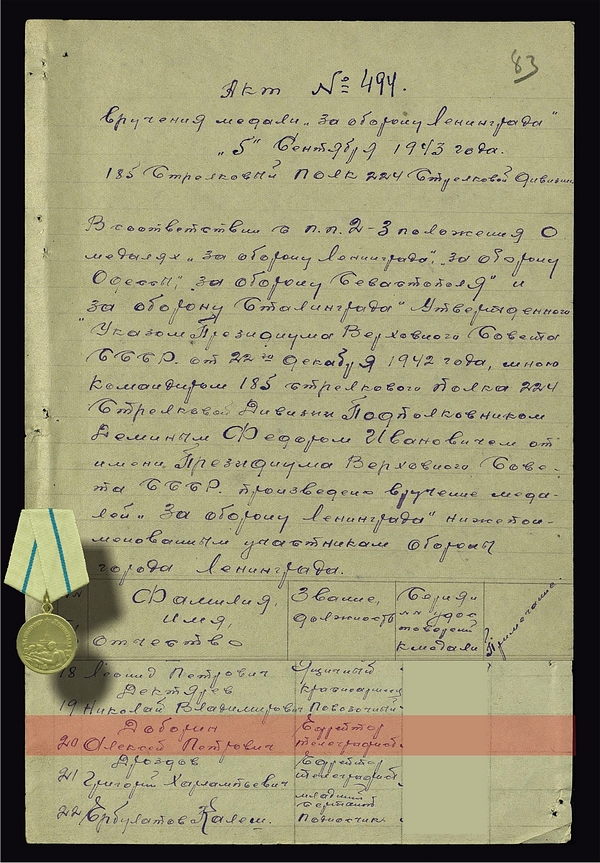 83
Акт № 494.
вручения медали „За оборону Ленинграда"
„5" Сентября 1943 года.
185 Стрелковый Полк 224 Стрелковой Дивизии
В соответствии с п.п. 2-3 положения о
медалях „за оборону Ленинграда", „за оборону
Одессы", „за оборону Севастополя" и
„за оборону Сталинграда" Утвержденного
Указом Президиума Верховного Совета
СССР. от 22го декабря 1942 года, мною
командиром 185 стрелкового полка 224
Стрелковой Дивизии Подполковником
Деминым Федором Ивановичем от
имени Президиума Верховного Сове-
та СССР. произведено вручение меда-
лей „За оборону Ленинграда" нижепои-
менованным участникам обороны
города Ленинграда.
Фамилия, Звание, Серия и
имя, должность № удос
отчество товерений
к медали
Примечание.
18 Леонид Петрович Ящичный
Дектярев красноармеец
19 Николай Владимирович Повозочный
Доборин Ефрейтор
20 Алексей Петрович телеграфист
Дроздов Ефрейтор
21 Григорий Харлампьевич телеграфист
младший
сержант
22 Ербулатов Подносчик